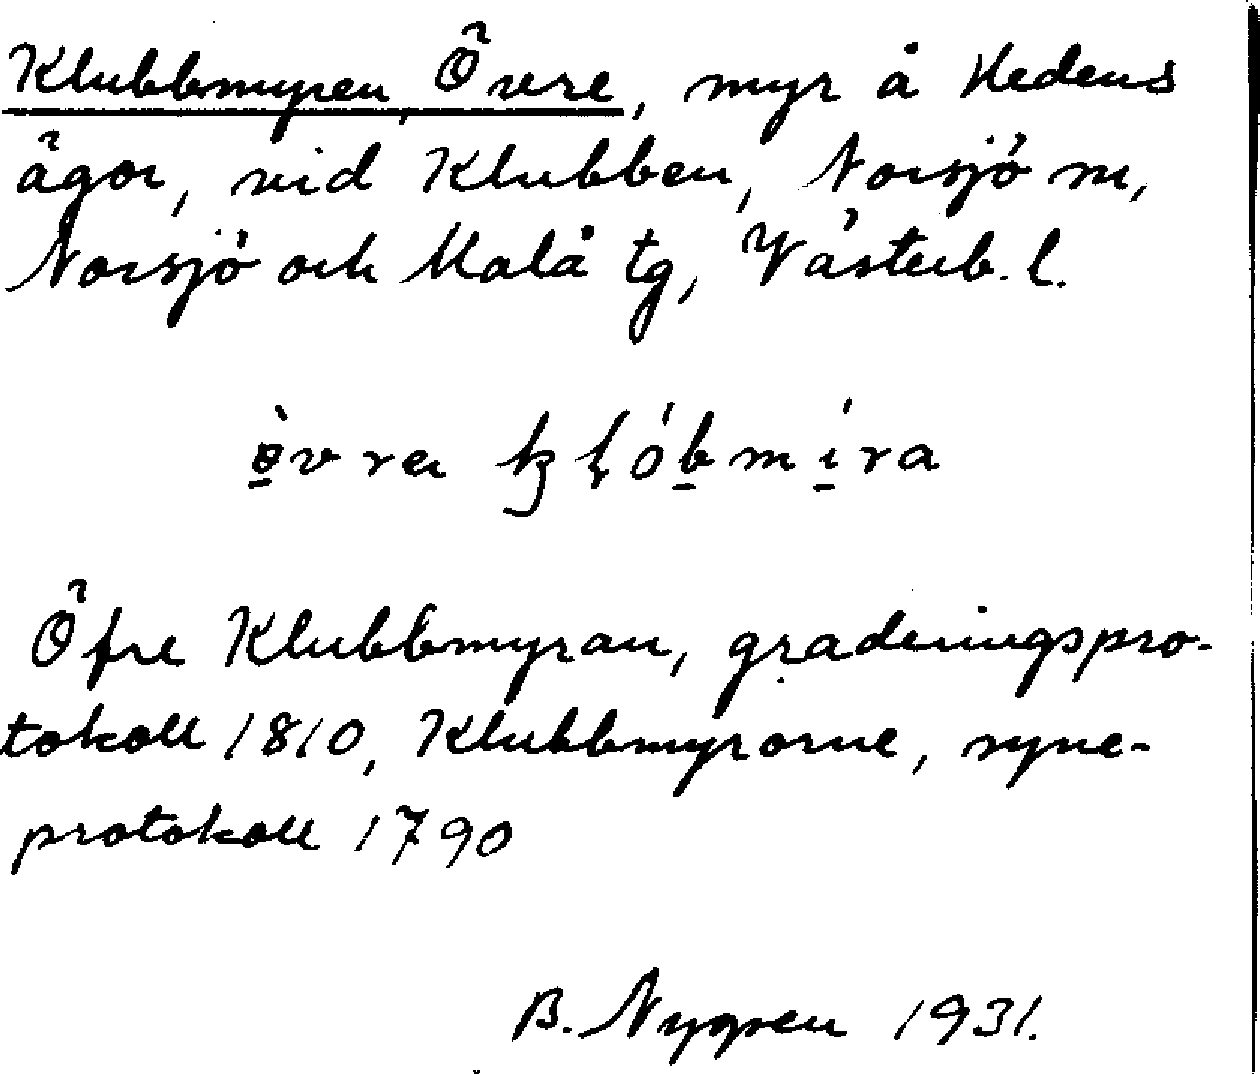 Klubbmyren, Övre, myr å Hedens
ägor, vid Klubben, Norsjö sn,
Norsjö och Malå tg, Västerb. l.
Öfre Klubbmyran, graderingspro-
tokoll 1810, Klubbmyrorne, syne-
protokoll 1790
B. Nygren 1931.